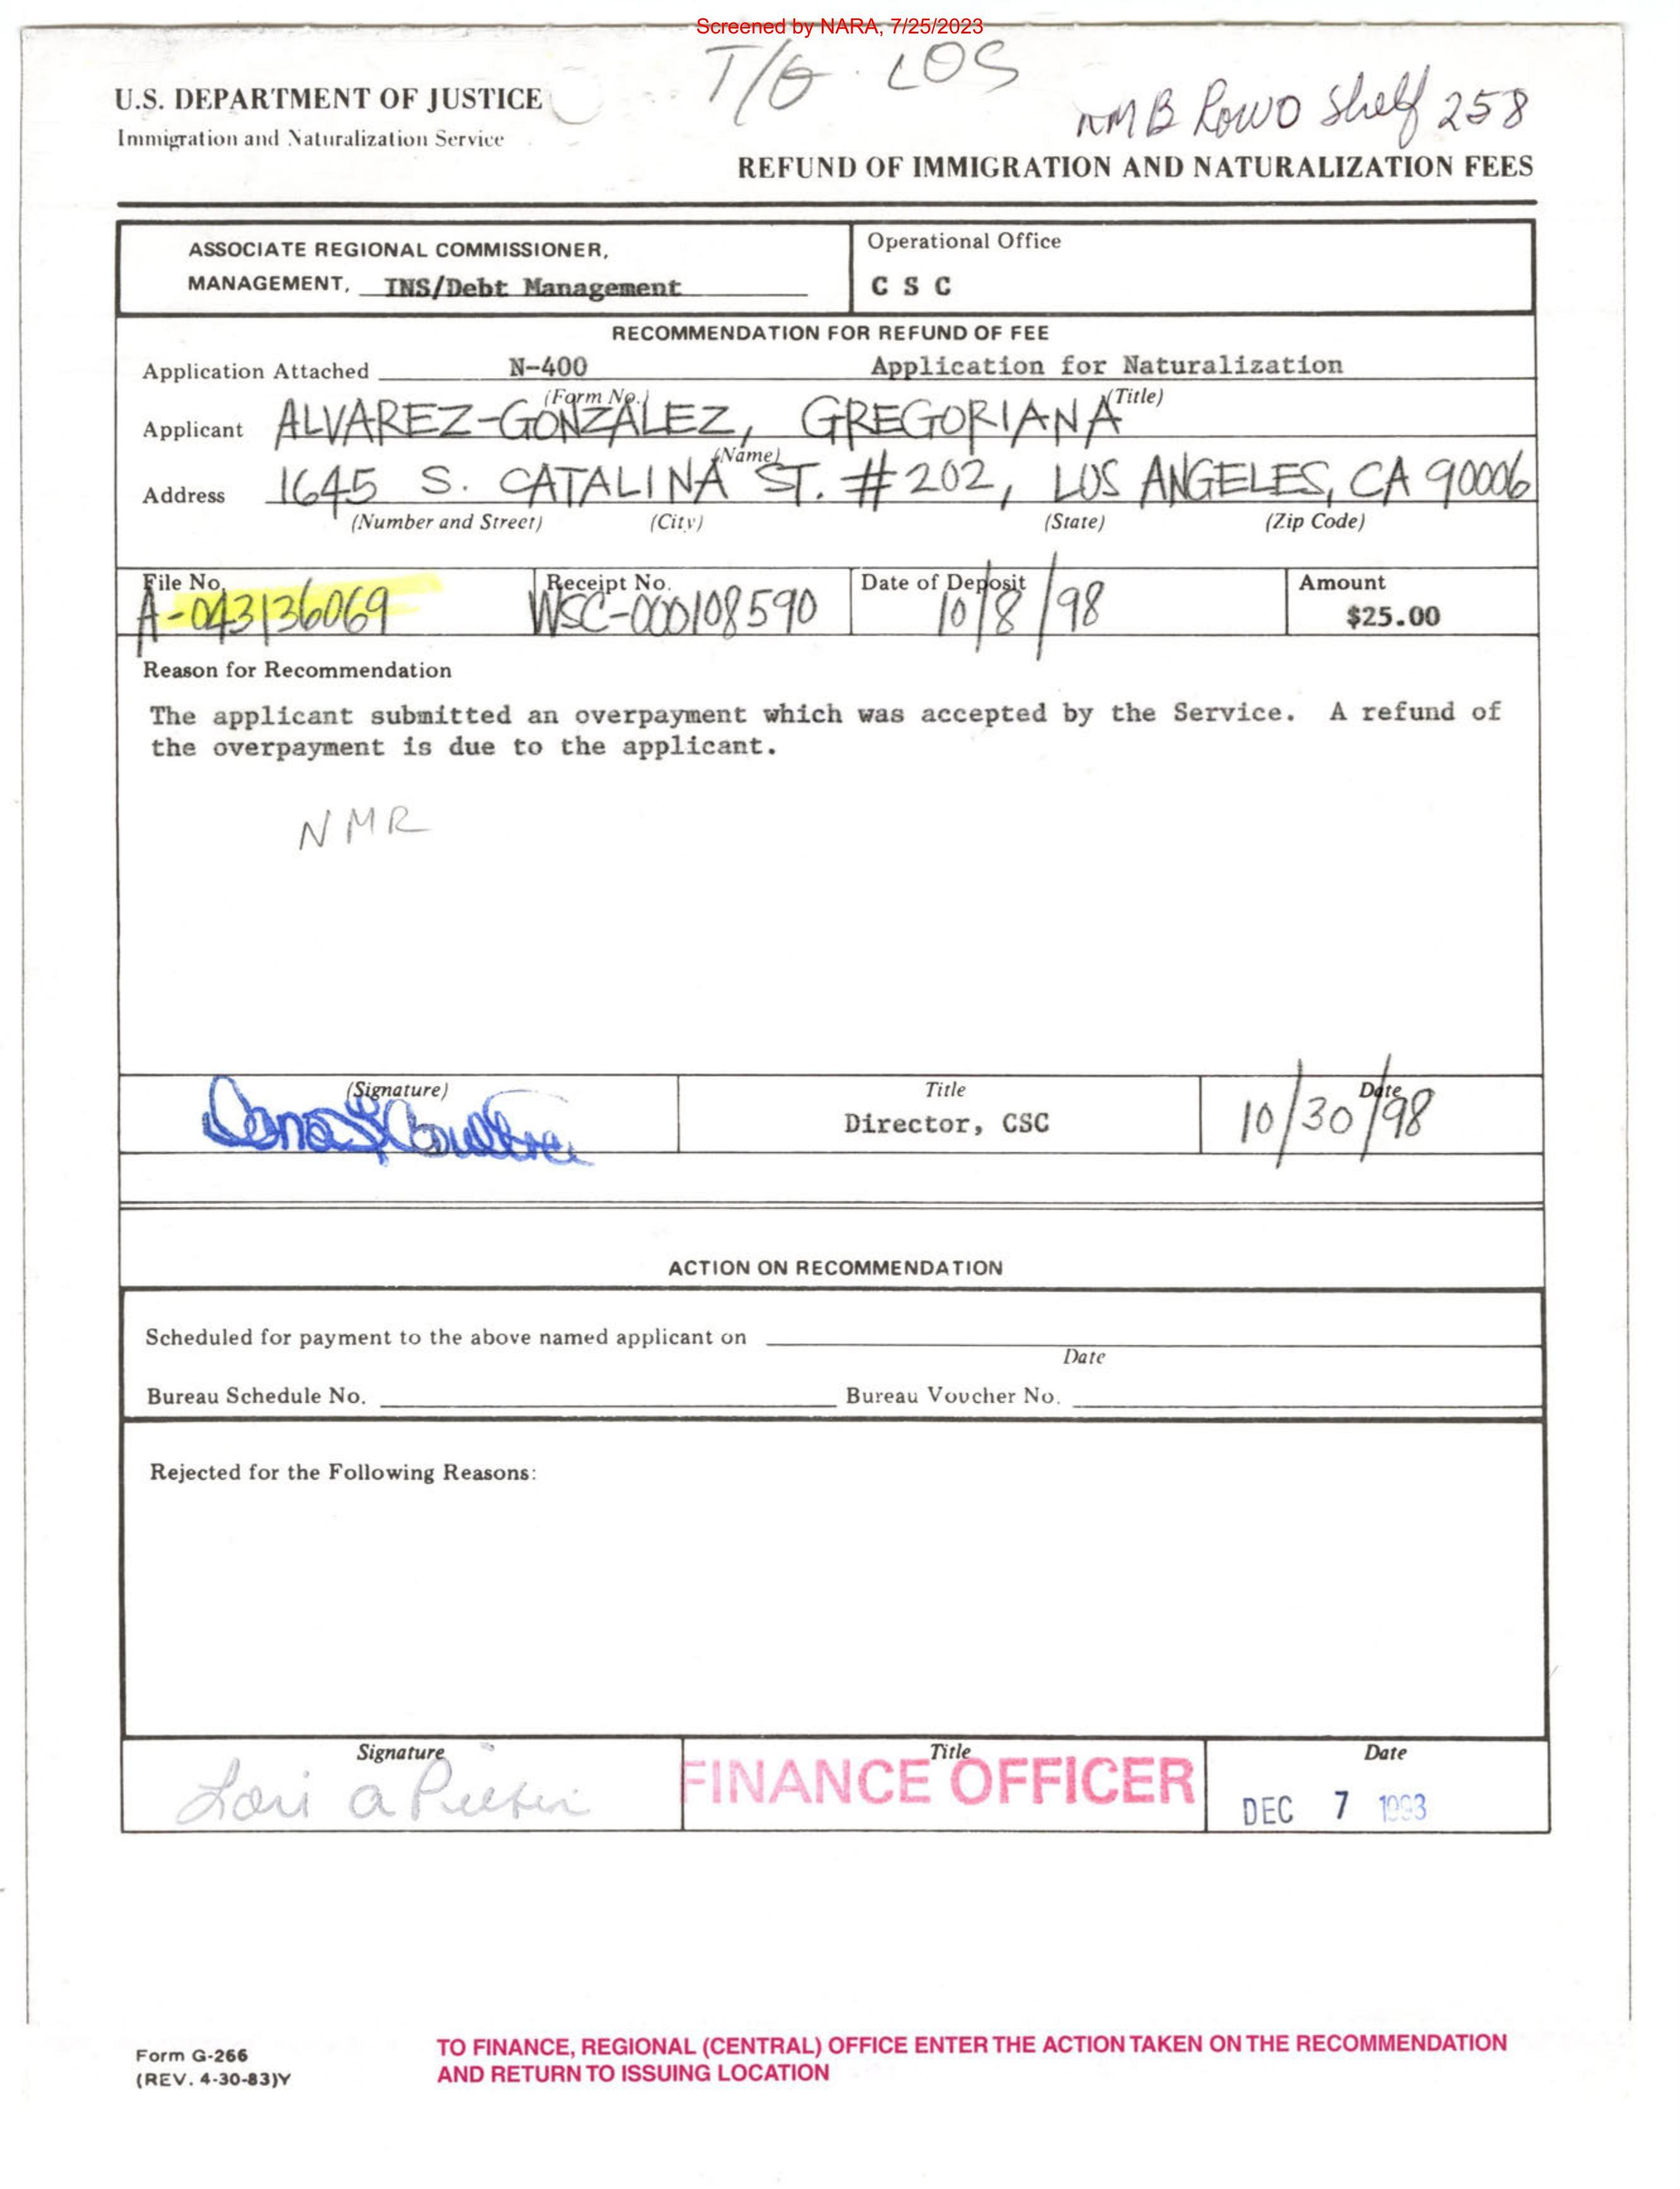 Screened by NARA, 7/25/2023
T/G. LOS
U.S. DEPARTMENT OF JUSTICE
Immigration and Naturalization Service
NMB Row0 Shelf 258
REFUND OF IMMIGRATION AND NATURALIZATION FEES
ASSOCIATE REGIONAL COMMISSIONER,
MANAGEMENT, INS/Debt Management
Operational Office
C S C
RECOMMENDATION FOR REFUND OF FEE
Application Attached N-400 Application for Naturalization
(Form No.) (Title)
Applicant ALVAREZ-GONZALEZ, GREGORIANA
(Name)
Address 1645 S. CATALINA ST. #202, LOS ANGELES, CA 90006
(Number and Street) (City) (State) (Zip Code)
File No. Receipt No. Date of Deposit Amount
A-043136069 WSC-000108590 10/8/98 $25.00
Reason for Recommendation
The applicant submitted an overpayment which was accepted by the Service. A refund of
the overpayment is due to the applicant.
NMR
(Signature) Title Date
Director, CSC 10/30/98
ACTION ON RECOMMENDATION
Scheduled for payment to the above named applicant on
Date
Bureau Schedule No. Bureau Voucher No.
Rejected for the Following Reasons:
Signature Title Date
Lori a FINANCE OFFICER DEC 7
Form G-266
(REV. 4-30-83)Y
TO FINANCE, REGIONAL (CENTRAL) OFFICE ENTER THE ACTION TAKEN ON THE RECOMMENDATION
AND RETURN TO ISSUING LOCATION